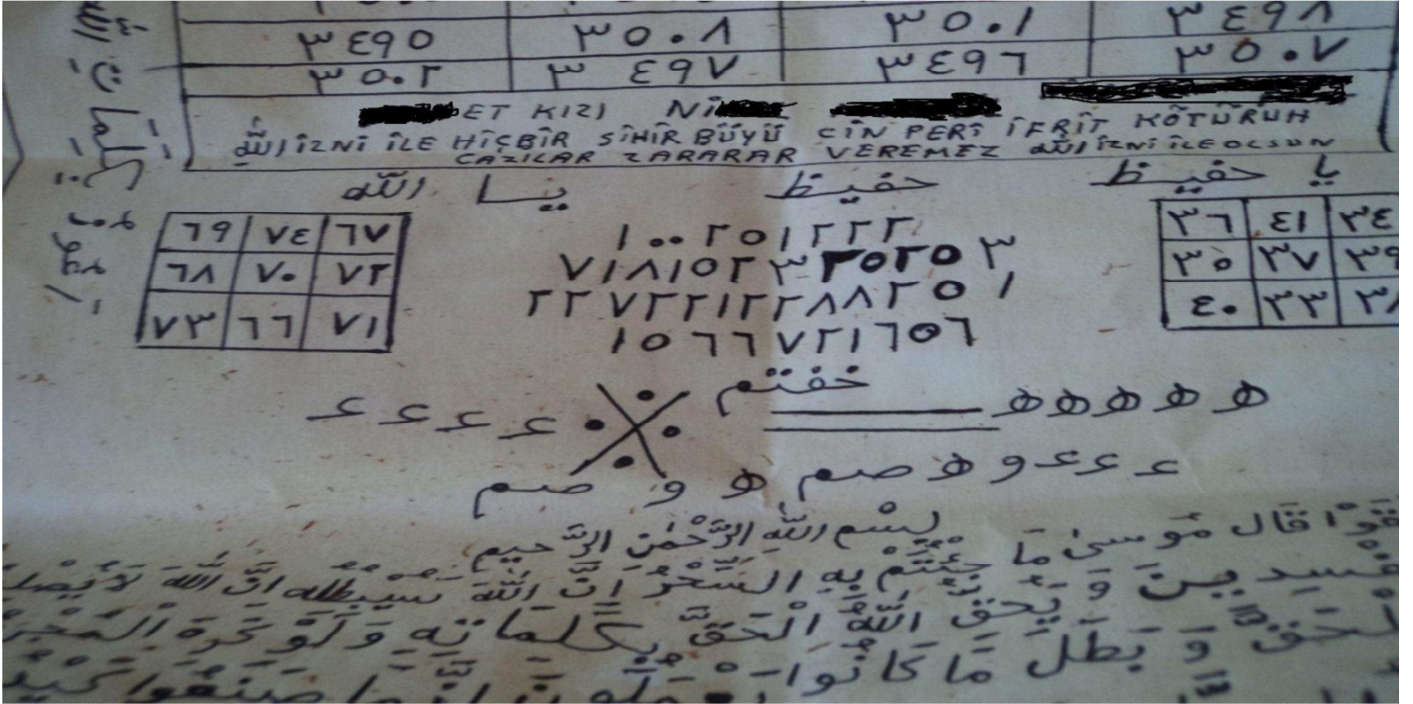 ٣٤٩٥ ٣٥٠٨ ٣٥٠١ ٣٤٩٨
٣٥٠٢ ٣٤٩٧ ٣٤٩٦ ٣٥٠٧
ET KIZI Nİ
الله İZNİ İLE HİÇBİR SİHİR BÜYÜ CİN PERİ İFRİT KÖTÜRUH
CAZILAR ZARARAR VEREMEZ الله İZNİ İLE OLSUN
يا حفيظ حفيظ يا الله
٦٩ ٧٤ ٦٧
٦٨ ٧٠ ٧٢
٧٣ ٦٦ ٧١
١٠٠٢٥١٢٢٢
٧١٨١٥٢٣٣٥٢٥٣
٢٢٧٢٢١٢٢٨٨٢٥١
١٥٦٦٧٢١٦٥٦
٣٦ ٤١ ٣٤
٣٥ ٣٧ ٣٩
٤٠ ٣٣ ٣٨
خفتم
ه ه ه ه ه
ع ع ع ع
ع ع ع و ه صم ه و صم
بسم الله الرحمن الرحيم
قال موسى ما جئتم به السحر إن الله سيبطله ان الله لا
ويحق الله الحق بكلماته ولو كره
وبطل ما كانوا صنعوا